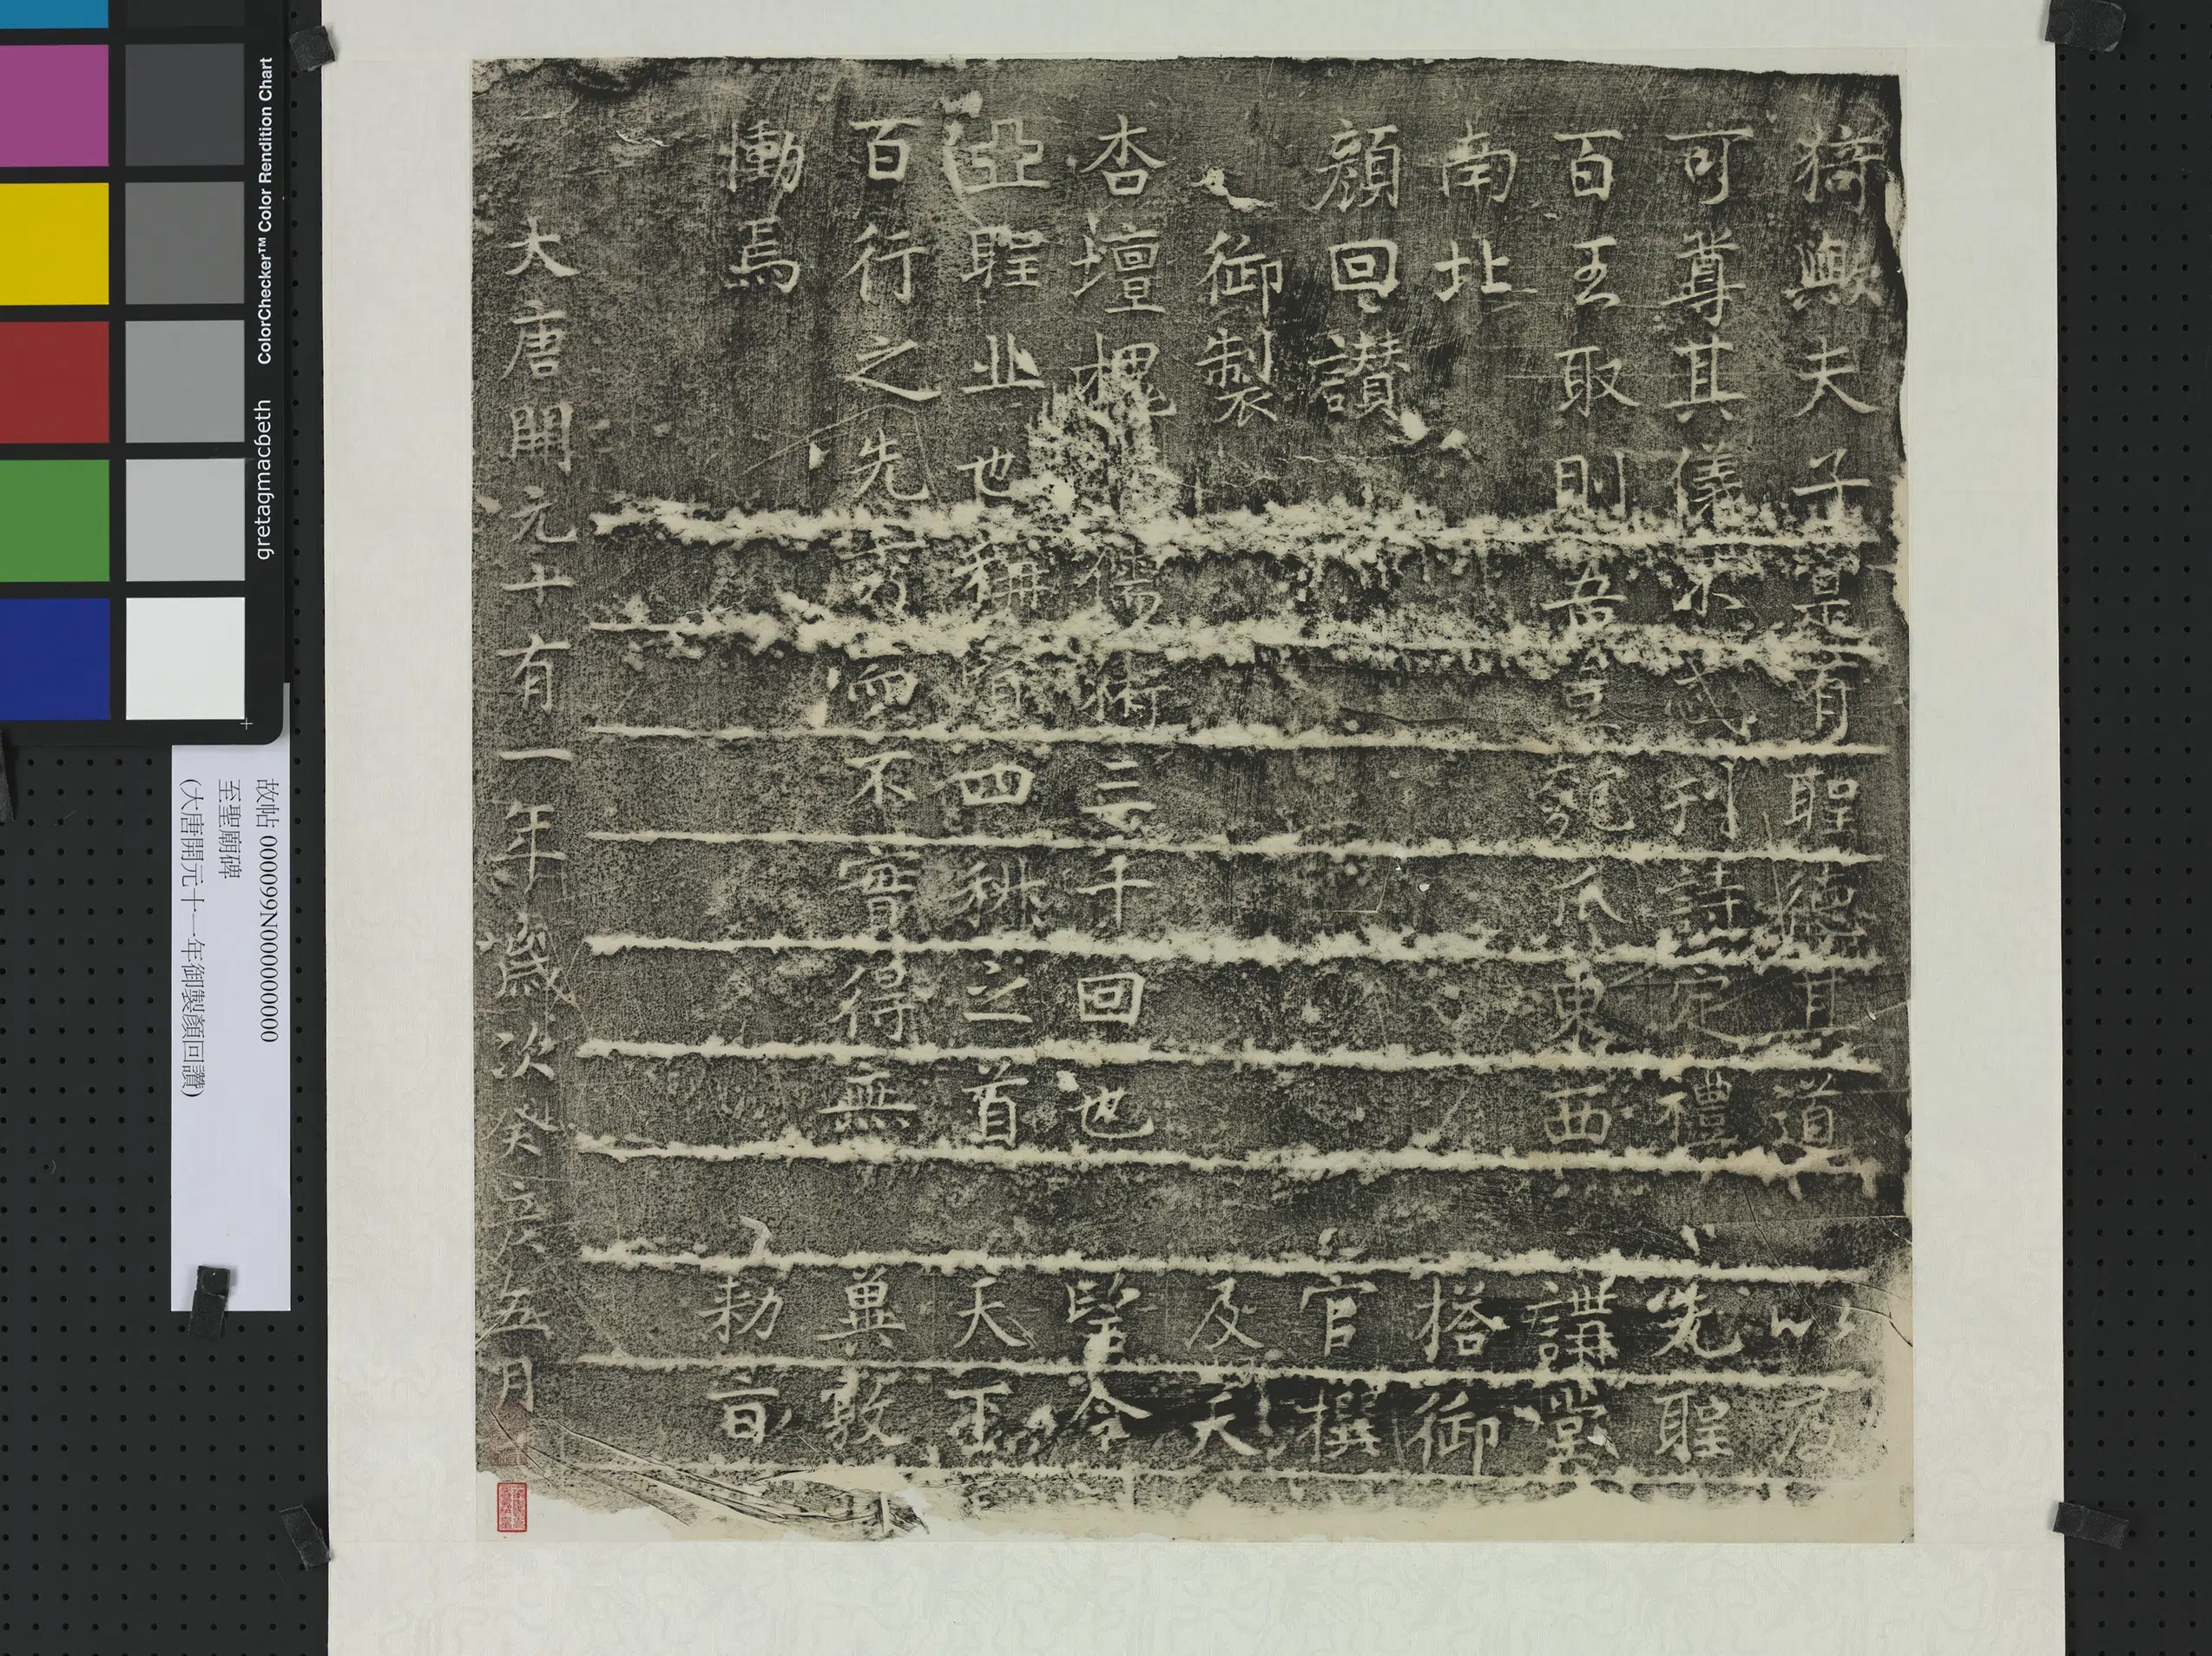 猗歟夫子寔有聖德其道
可尊其儀不忒刊詩定禮
百王取則吾豈匏瓜東西
南北
顏回讚
御製
杏壇槐儒術三千回也
亞聖丘也稱賢四科之首
百行之先秀而不實得無
慟焉
以度
先聖
講堂
搭御
官撰
及天
令
天王
冀敦
勑旨
大唐開元十有一年歲次癸亥五月
故帖 000099N000000000
至聖廟碑
(大唐開元十一年御製顏回讚)
ColorChecker™ Color Rendition Chart
gretagmacbeth